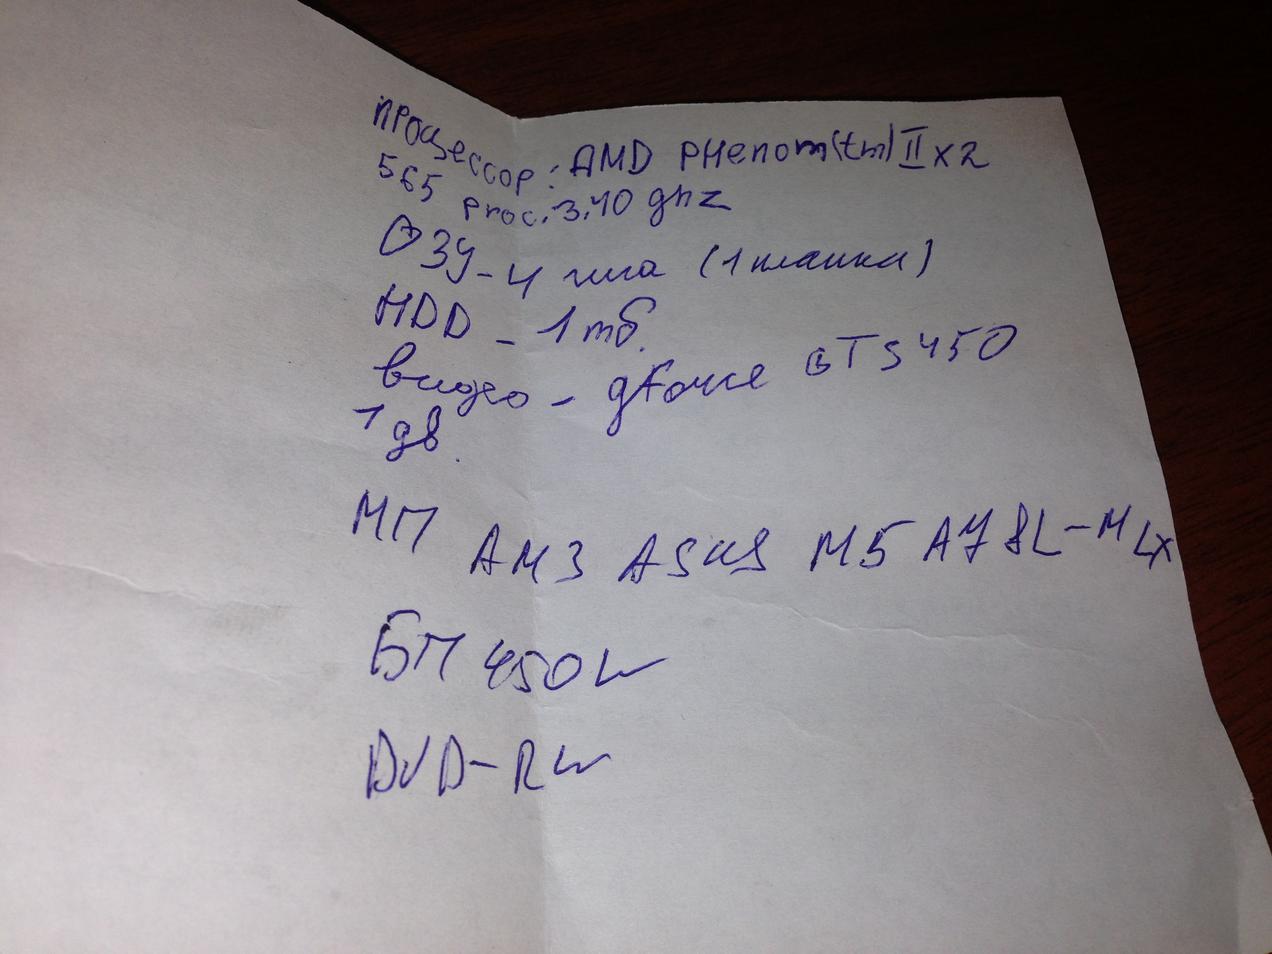 процессор: AMD PHenom(tm) II x2
565 proc. 3.40 ghz
ОЗУ - 4 гига (1 планка)
HDD - 1 тб.
видео - gForce GTS 450
1 gb.
МП AM3 ASUS M5A78L-M LX
БП 450W
DVD-RW